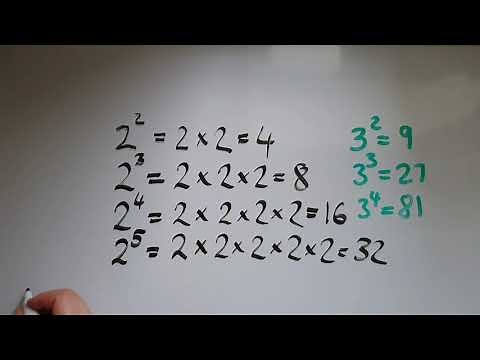 2² = 2 × 2 = 4
2³ = 2 × 2 × 2 = 8
2⁴ = 2 × 2 × 2 × 2 = 16
2⁵ = 2 × 2 × 2 × 2 × 2 = 32
3² = 9
3³ = 27
3⁴ = 81